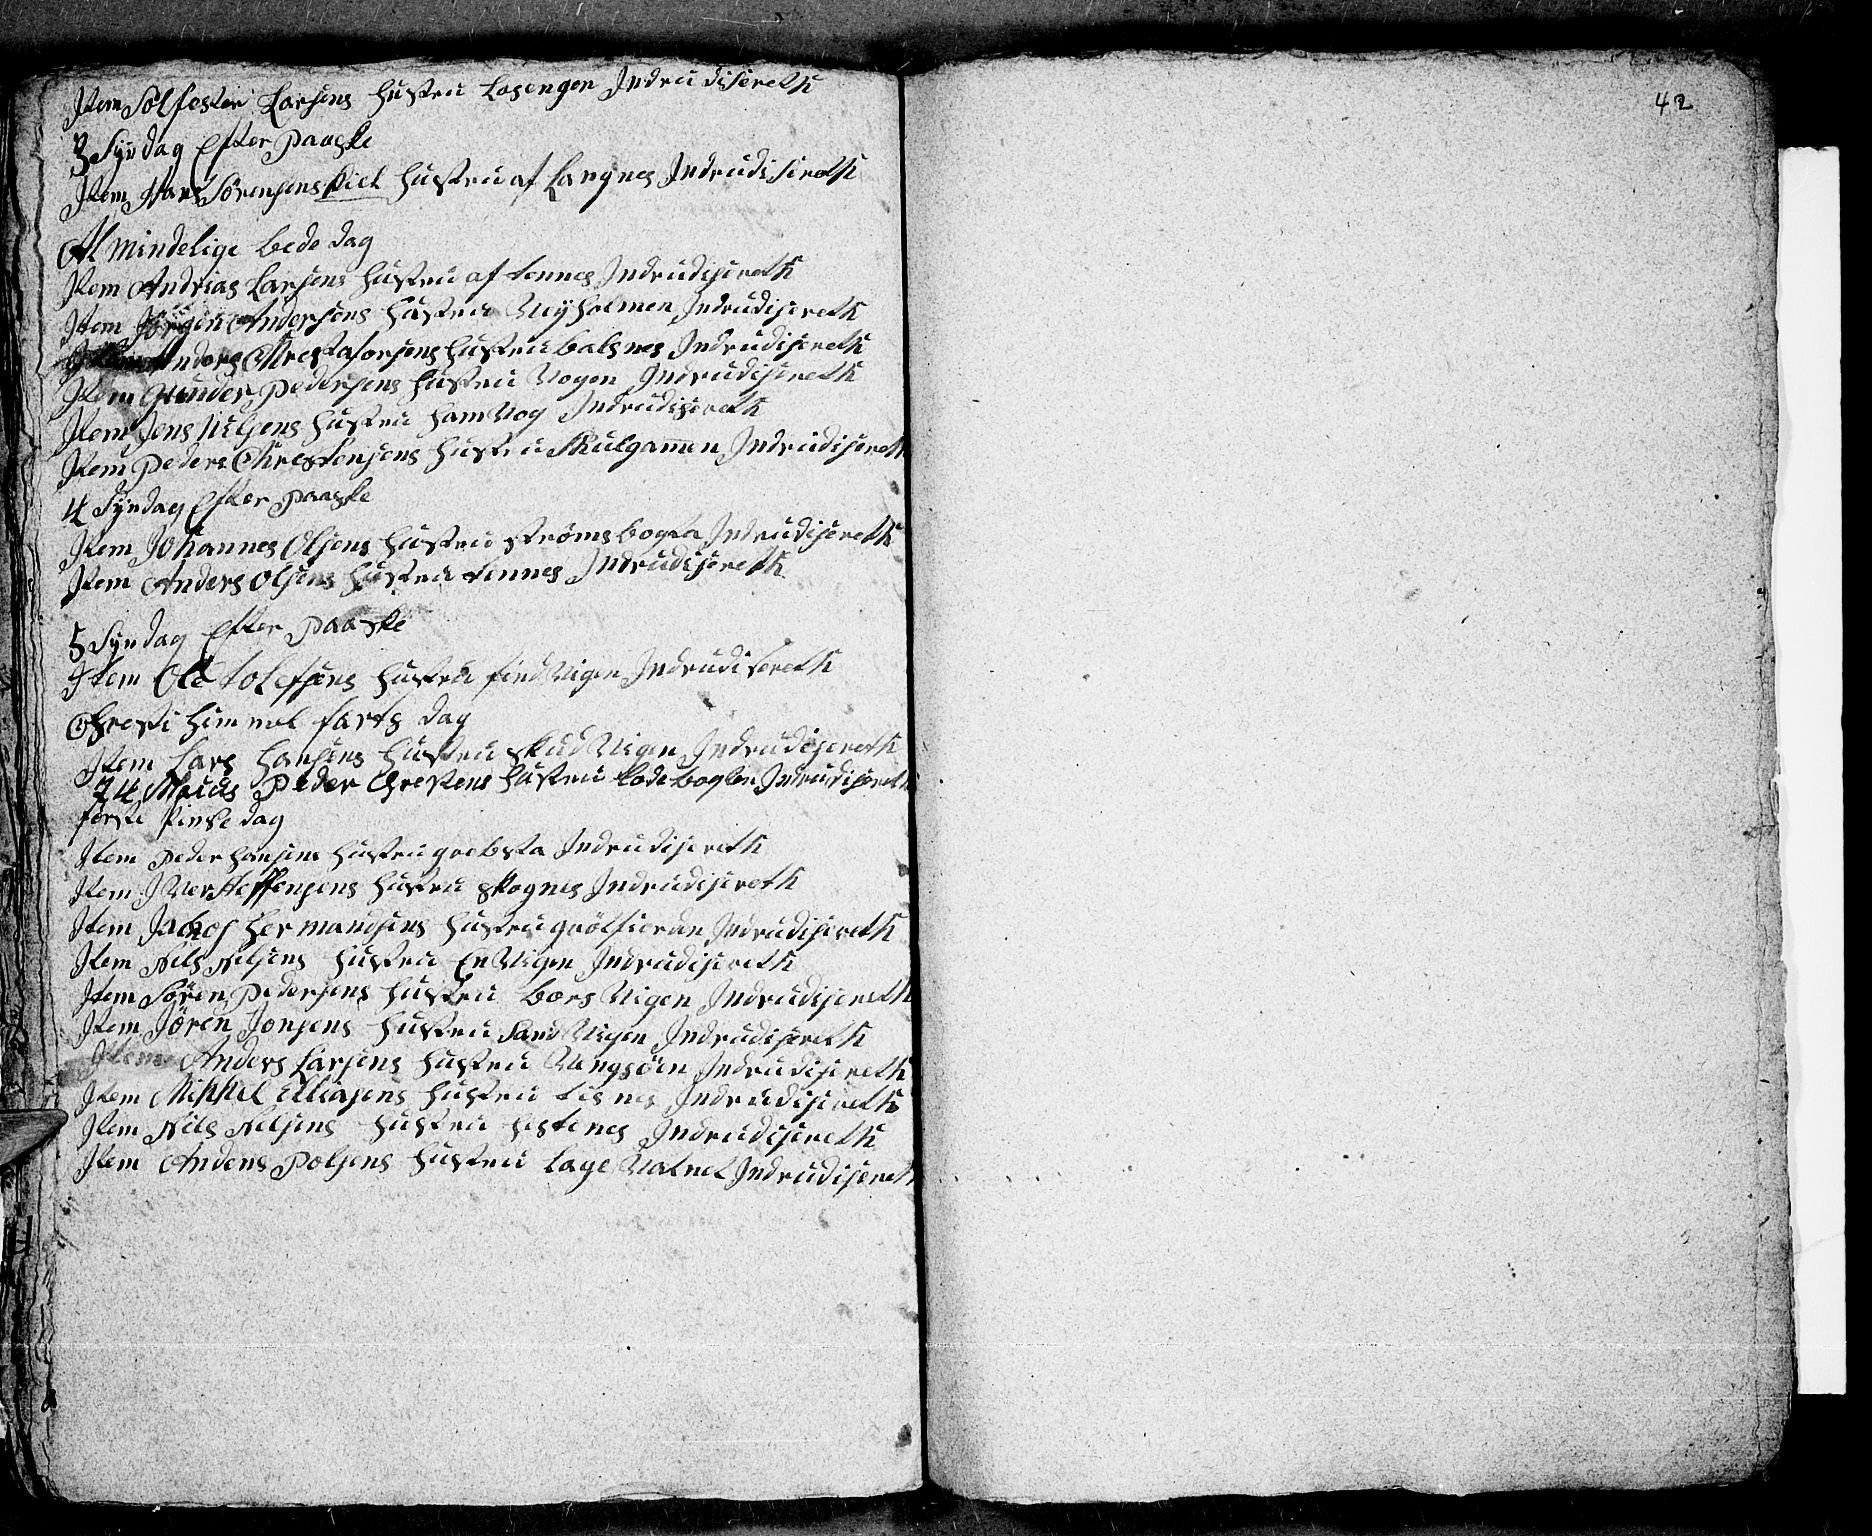 Item Solfester Larsens Hustru Losengen Indrudisereth
3 Syndag Efter Paaske
Item Hans Sörensens Kiel Hustru af Langnes Indrudisereth
Almindelige bede dag
Item Andrias Larsens Hustru af tennes Indrudisereth
Item Jörgen Andersens Hustru Meyholmen Indrudisereth
Item Anders Chrestafersens Hustru balsnes Indrudisereth
Item Gunder Pedersens Hustru Vogen Indrudisereth
Item Jens Nilsens Hustru hamVog Indrudisereth
Item Peders Chrestensens Hustru Skulgamen Indrudisereth
4 Syndag Efter Paaske
Item Johannes Olsens Hustru strømsbogta Indrudisereth
Item Anders Olsens Hustru tennes Indrudisereth
5 Syndag Efter Paaske
Item Ole tolefsens Hustru findVigen Indrudisereth
Chresti himmel farts dag
Item Lars Hansens Hustru SkudVigen Indrudisereth
24 Maius Peder Chrestens Hustru Indrudisereth
første Pinse dag
Item Peder Hansens Hustru grebsta Indrudisereth
Item IVer Steffensens Hustru Skognes Indrudisereth
Item Jacob Hermandsens Hustru grötfiorden Indrudisereth
Item Nils Nilsens Hustru EnVigen Indrudisereth
Item Sören Pedersens Hustru borsVigen Indrudisereth
Item Jören Jonsens Hustru SandVigen Indrudisereth
Item Anders Larsens Hustru Vengsöen Indrudisereth
Item Mikkel Elliasens Hustru tisnes Indrudisereth
Item Nils Nilsens Hustru Hestenes Indrudisereth
Item Anders Polsens Hustru lageVatnet Indrudisereth
42